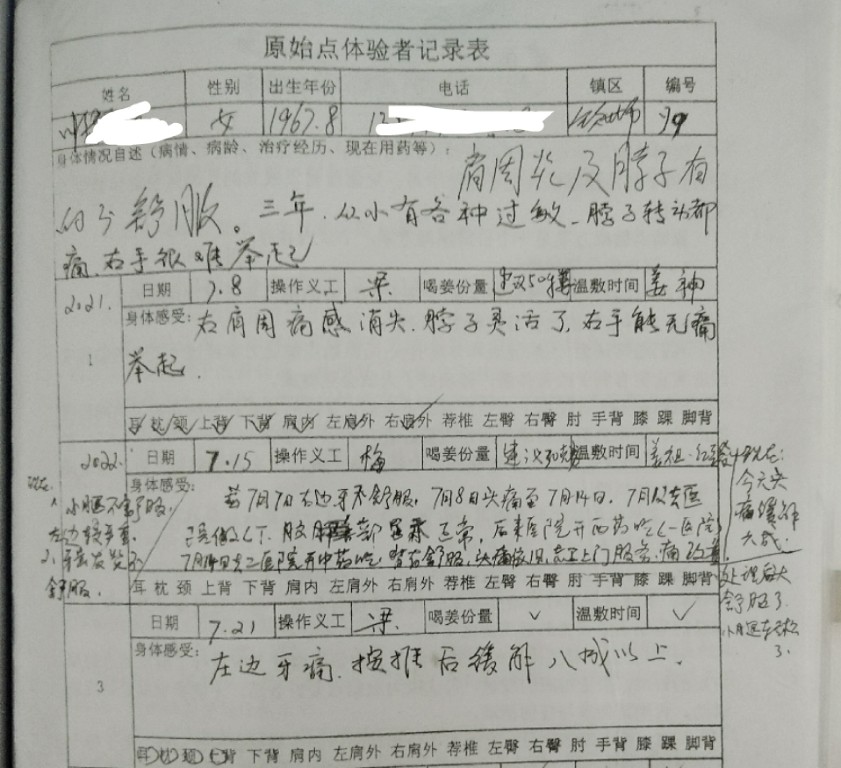 原始点体验者记录表
姓名 性别 出生年份 电话 镇区 编号
女 1967.8
身体情况自述（病情、病龄、治疗经历、现在用药等）：
肩周炎及脖子有
舒服。三年.从小有各种过敏.脖子转动都
痛.右手很难举起
2021. 日期 7.8 操作义工 梁 喝姜份量 建议50 温敷时间
1 身体感受：右肩周痛感消失.脖子灵活了.右手能无痛
举起.
耳 枕 颈 上背 下背 肩内 左肩外 右肩外 荐椎 左臀 右臀 肘 手背 膝 踝 脚背
2022. 日期 7.15 操作义工 梅 喝姜份量 建议30 温敷时间
身体感受：
7月7日右边牙不舒服，7月8日头痛至7月14日.
正常，后来医院开西药吃
7月14日去二医院开中药吃. 上门服务.痛
耳 枕 颈 上背 下背 肩内 左肩外 右肩外 荐椎 左臀 右臀 肘 手背 膝 踝 脚背
1. 小腿不舒服.
左边较严重.
舒服.
今天头
痛缓解
六成.
处理后大
舒服了.
3 日期 7.21 操作义工 梁 喝姜份量 ✓ 温敷时间 ✓
身体感受：左边牙痛.按推后缓解八成以上.
耳 枕 颈 上背 下背 肩内 左肩外 右肩外 荐椎 左臀 右臀 肘 手背 膝 踝 脚背